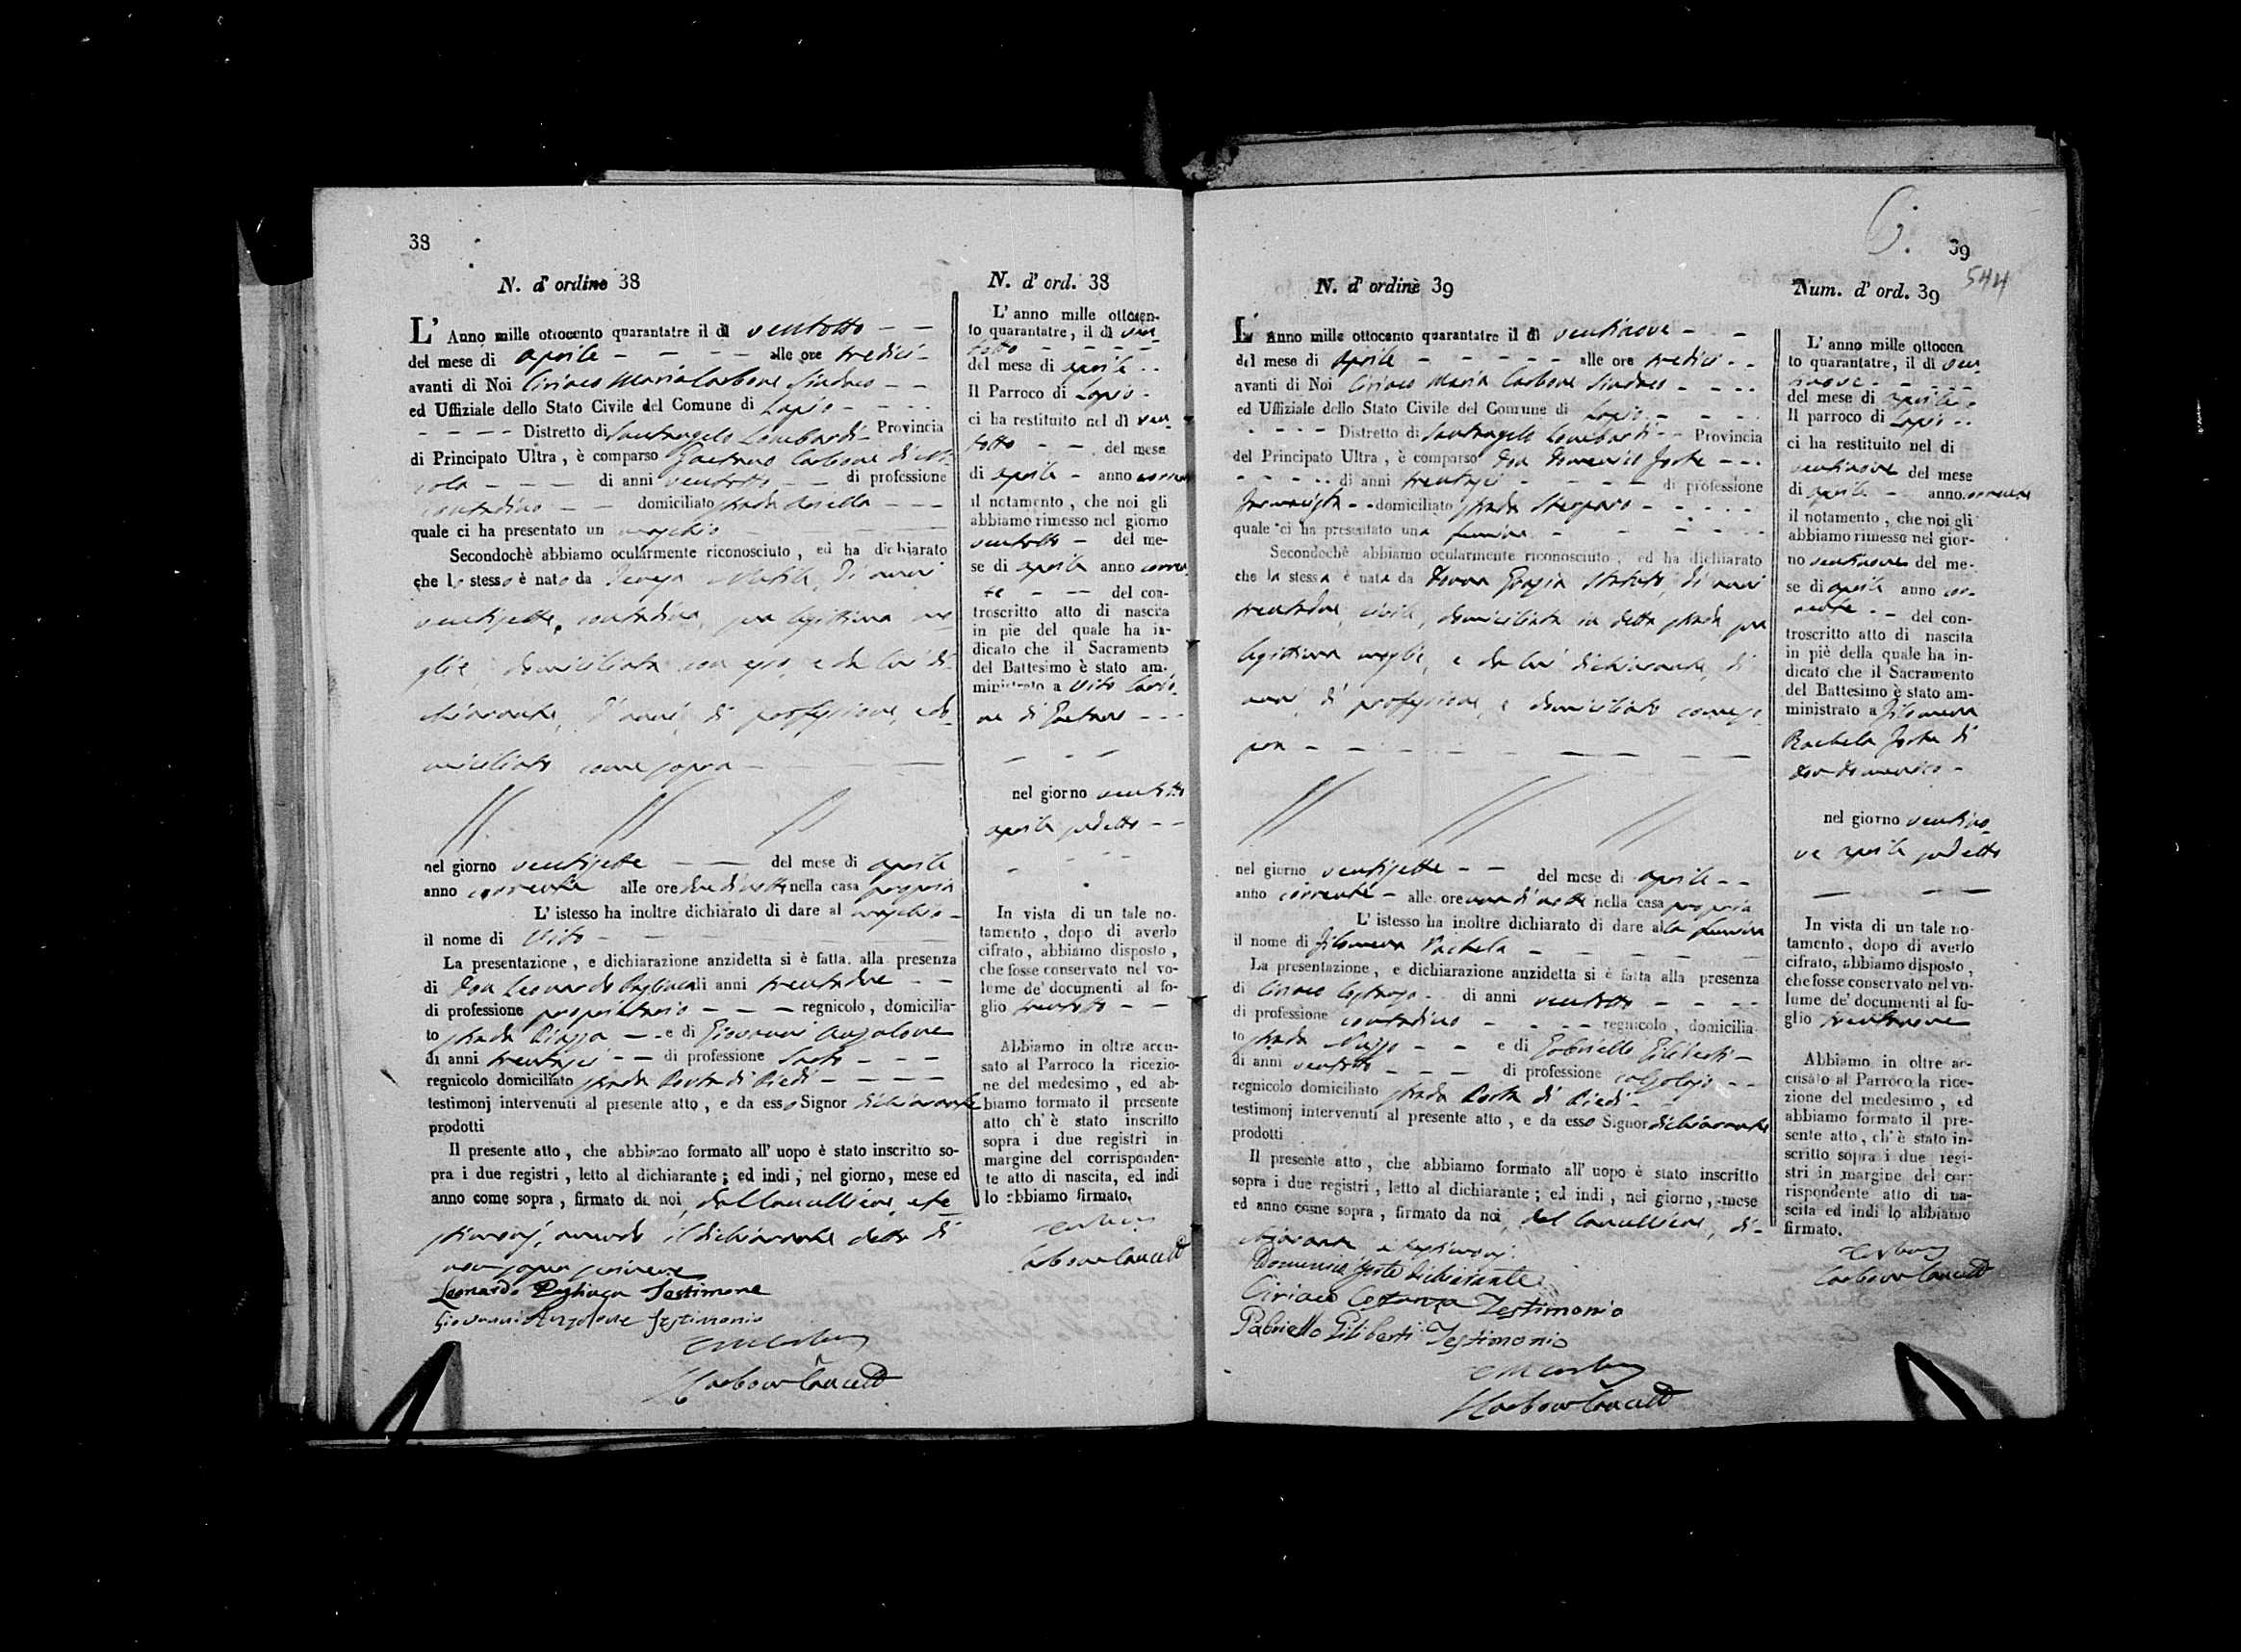 38
N. d' ordine 38
L' Anno mille ottocento quarantatre il dì ventotto
del mese di aprile alle ore tredici
avanti di Noi Ciriaco Maria Carbone Sindaco
ed Uffiziale dello Stato Civile del Comune di Lapio
Distretto di Santangelo Lombardi Provincia
di Principato Ultra , è comparso Gaetano Carbone di Ni-
cola di anni ventotto di professione
contadino domiciliato strada
quale ci ha presentato un maschio
Secondochè abbiamo ocularmente riconosciuto , ed ha dichiarato
che lo stesso è nato da Teresa di anni
ventisette, contadina, sua legittima mo-
glie, domiciliata con esso, e da lui di-
chiarante, d'anni, di professione, e do-
miciliato come sopra
nel giorno ventisette del mese di aprile
anno corrente alle ore due di notte nella casa propria
L' istesso ha inoltre dichiarato di dare al maschio
il nome di Vito
La presentazione , e dichiarazione anzidetta si è fatta alla presenza
di Don Leonardo Pagliuca di anni trentadue
di professione proprietario regnicolo , domicilia-
to strada Piazza e di Giovanni Anzalone
di anni trentasei di professione Sarto
regnicolo domiciliato strada Porta di Piedi
testimonj intervenuti al presente atto , e da esso Signor dichiarante
prodotti
Il presente atto , che abbiamo formato all' uopo è stato inscritto so-
pra i due registri , letto al dichiarante ; ed indi , nel giorno, mese ed
anno come sopra , firmato da noi, dal Cancelliere, e te-
stimonj, avendo il dichiarante detto di
non saper scrivere
Leonardo Pagliuca Testimone
Giovanni Anzalone testimonio
Carbone Cancell
N. d' ord. 38
L' anno mille ottocen-
to quarantatre , il dì ven-
totto
del mese di aprile
Il Parroco di Lapio
ci ha restituito nel dì ven-
totto del mese
di aprile anno corren
il notamento , che noi gli
abbiamo rimesso nel giorno
ventotto del me-
se di aprile anno corren-
te del con-
troscritto atto di nascita
in piè del quale ha in-
dicato che il Sacramento
del Battesimo è stato am-
ministrato a Vito Carbo-
ne di Gaetano
nel giorno ventotto
aprile sudetto
In vista di un tale no-
tamento , dopo di averlo
cifrato , abbiamo disposto ,
che fosse conservato nel vo-
lume de' documenti al fo-
glio trentotto
Abbiamo in oltre accu-
sato al Parroco la ricezio-
ne del medesimo , ed ab-
biamo formato il presente
atto ch' è stato inscritto
sopra i due registri in
margine del corrisponden-
te atto di nascita, ed indi
lo abbiamo firmato.
Carbone Cancell
39
544
N. d' ordine 39
L' Anno mille ottocento quarantatre il dì ventinove
del mese di aprile alle ore tredici
avanti di Noi Ciriaco Maria Carbone Sindaco
ed Uffiziale dello Stato Civile del Comune di Lapio
Distretto di Santangelo Lombardi Provincia
del Principato Ultra , è comparso Don Domenico Forte
di anni trentasei di professione
domiciliato strada
quale ci ha presentato una femina
Secondochè abbiamo ocularmente riconosciuto , ed ha dichiarato
che la stessa è nata da Donna di anni
trentadue, civile, domiciliata in detta strada, sua
legittima moglie, e da lui dichiarante, di
anni, di professione, e domiciliato come so-
pra
nel giorno ventisette del mese di aprile
anno corrente alle ore una di notte nella casa propria
L' istesso ha inoltre dichiarato di dare alla femina
il nome di Filomena Rachela
La presentazione , e dichiarazione anzidetta si è fatta alla presenza
di Ciriaco Costanza di anni ventotto
di professione contadino regnicolo , domicilia-
to strada e di Gabriello Giliberti
di anni ventotto di professione calzolajo
regnicolo domiciliato strada Porta di Piedi
testimonj intervenuti al presente atto , e da esso Signor dichiarante
prodotti
Il presente atto , che abbiamo formato all' uopo è stato inscritto
sopra i due registri , letto al dichiarante ; ed indi , nel giorno , mese
ed anno come sopra , firmato da noi, dal Cancelliere, di-
chiarante e testimonj
Domenico Forte dichiarante
Ciriaco Costanza Testimonio
Gabriello Giliberti Testimonio
Carbone Cancell
Num. d' ord. 39
L' anno mille ottocen
to quarantatre, il dì ven-
tinove
del mese di aprile
Il parroco di Lapio
ci ha restituito nel dì
ventinove del mese
di aprile anno corrente
il notamento , che noi gli
abbiamo rimesso nel gior-
no ventinove del me-
se di aprile anno cor-
rente del con-
troscritto atto di nascita
in piè della quale ha in-
dicato che il Sacramento
del Battesimo è stato am-
ministrato a Filomena
Rachela Forte di
Don Domenico
nel giorno ventino-
ve aprile sudetto
In vista di un tale no-
tamento, dopo di averlo
cifrato, abbiamo disposto,
che fosse conservato nel vo-
lume de' documenti al fo-
glio trentanove
Abbiamo in oltre ac-
cusato al Parroco la rice-
zione del medesimo , ed
abbiamo formato il pre-
sente atto, ch' è stato in-
scritto sopra i due regi-
stri in margine del cor-
rispondente atto di na-
scita ed indi lo abbiamo
firmato.
Carbone Cancell